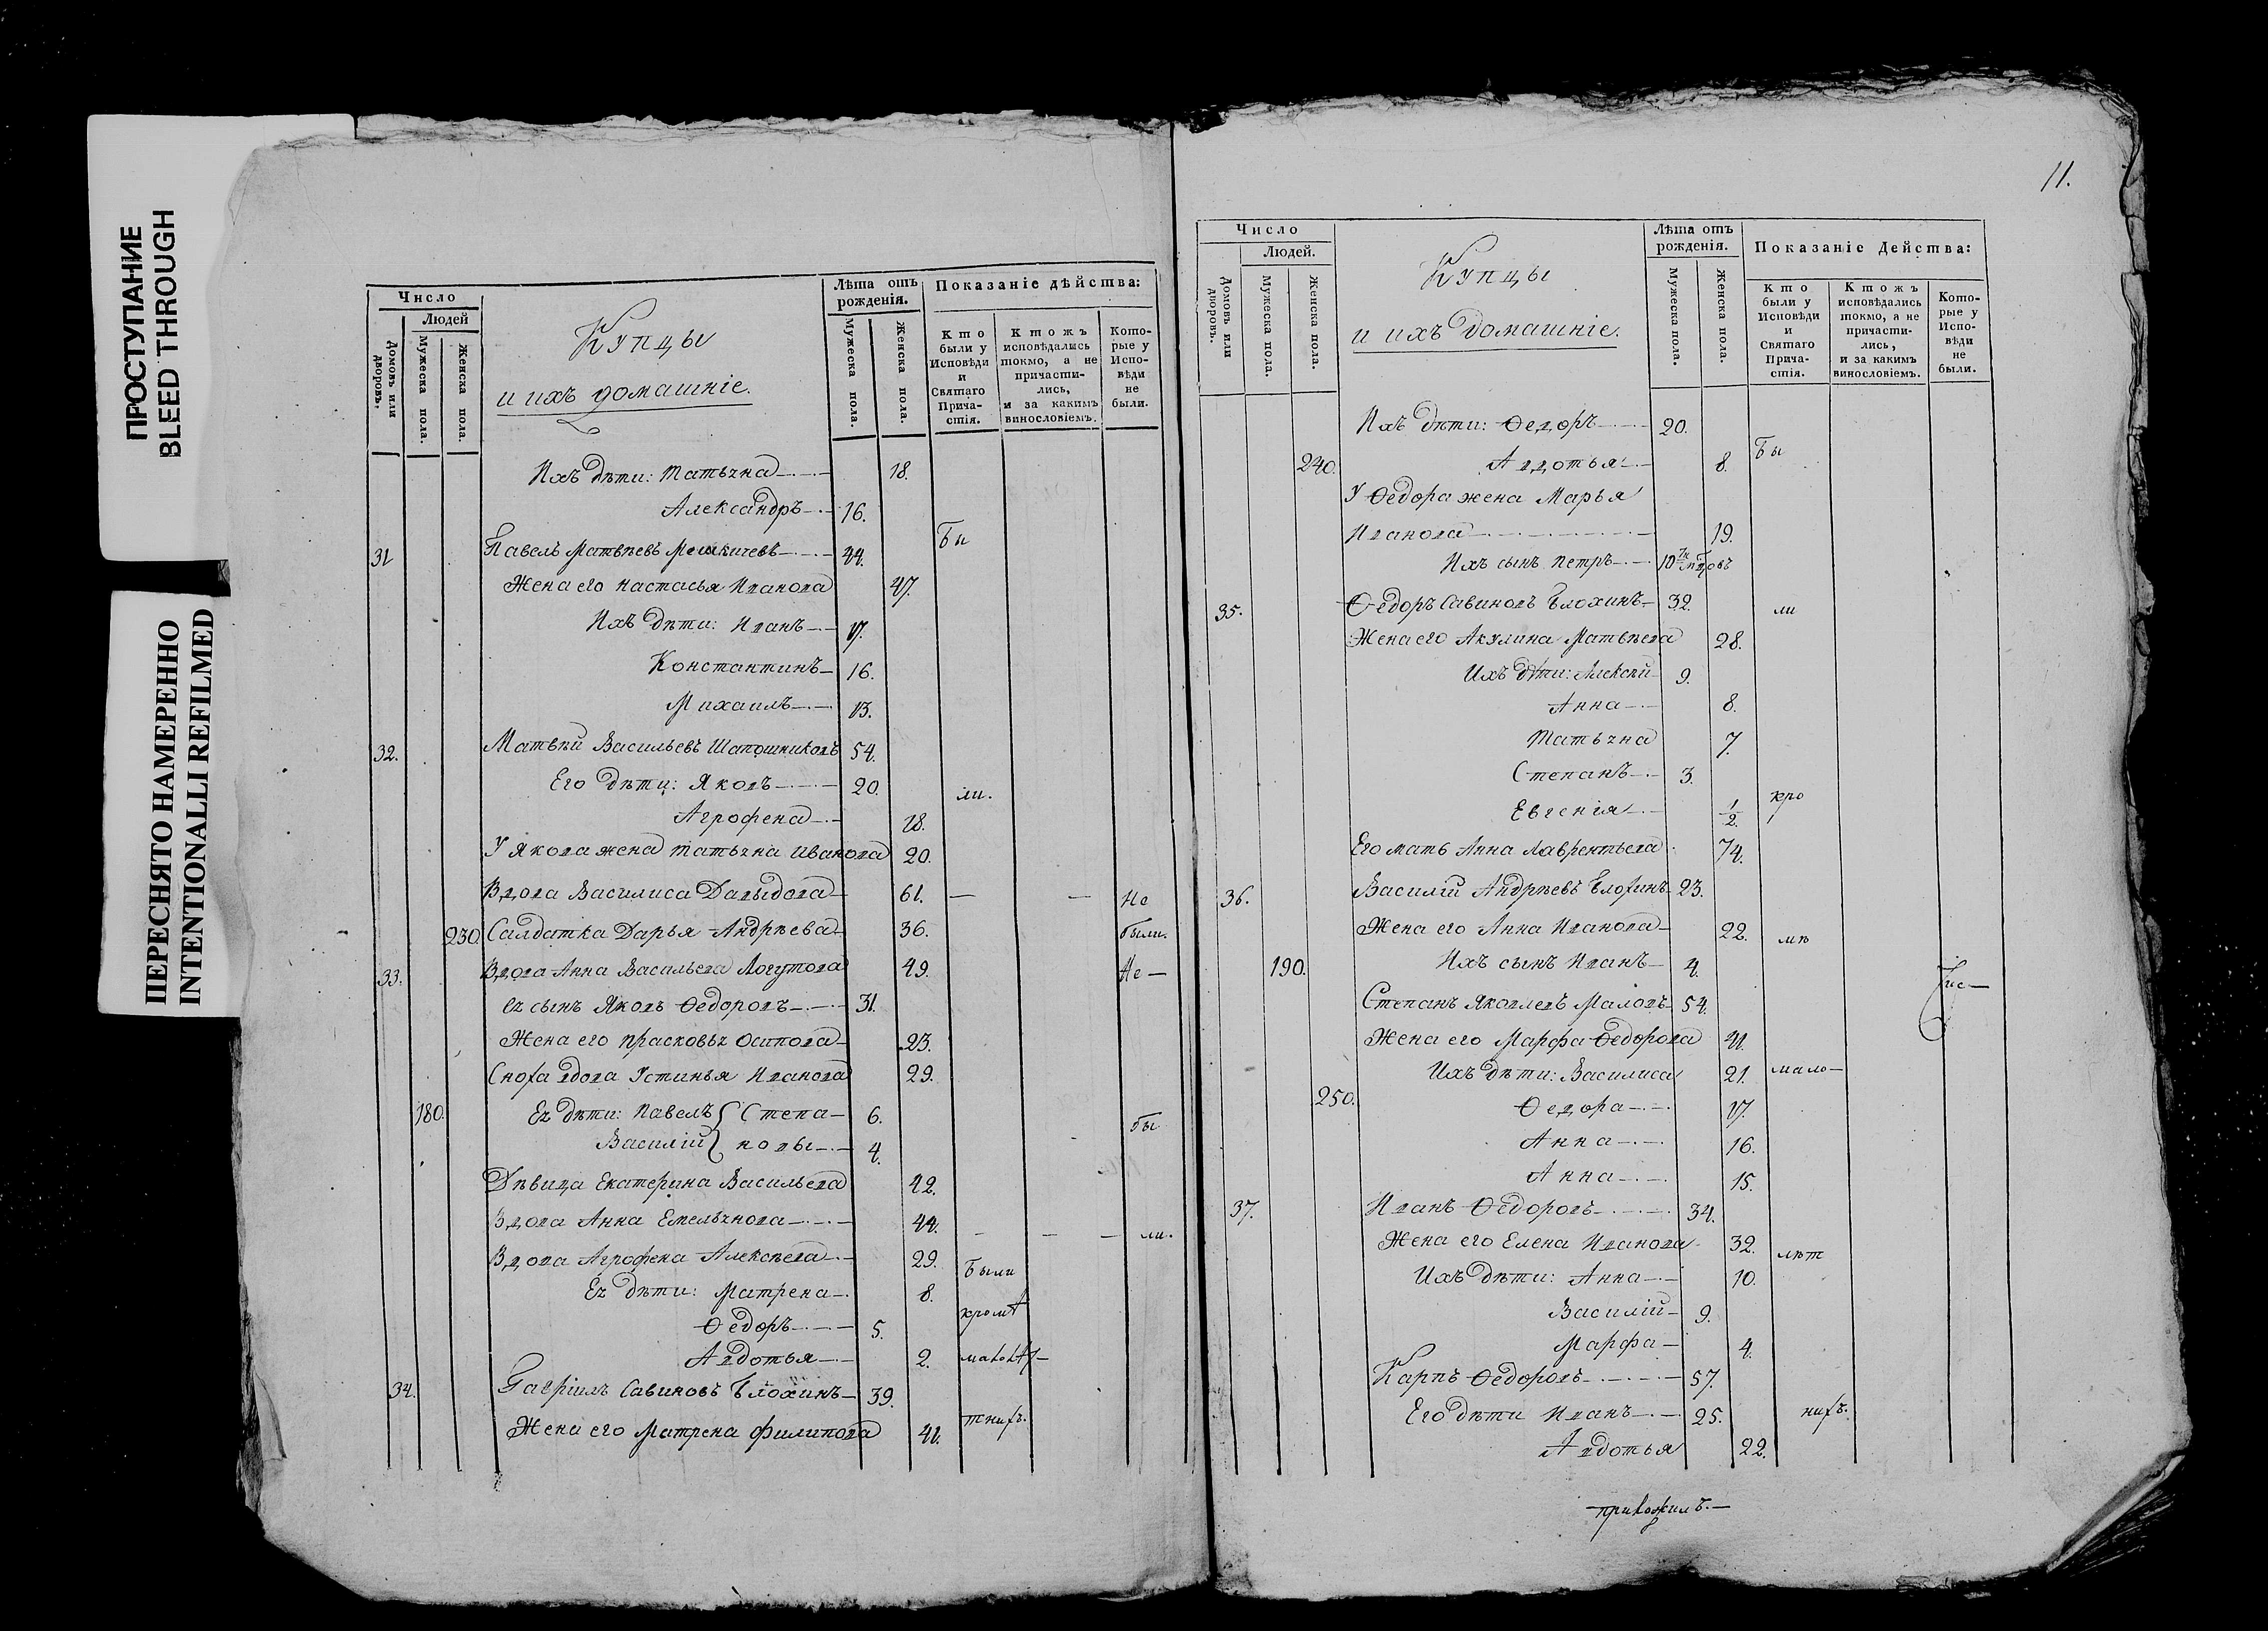 ПРОСТУПАНИЕ
BLEED THROUGH
ПЕРЕСНЯТО НАМЕРЕННО
INTENTIONALLI REFILMED
Число
Людей
Домовъ или дворовъ.
Мужеска пола.
Женска пола.
Купцы
и ихъ домашніе.
Лѣта отъ рожденія.
Мужеска пола.
Женска пола.
Показаніе дѣйства:
Кто были у Исповѣди и Святаго Причастія.
Ктожъ исповѣдались токмо, а не причастились, и за какимъ винословіемъ.
Которые у Исповѣди не были.
Ихъ дѣти: Татьяна 18.
Александръ 16.
31 Павелъ Матвѣевъ 44. Бы
Жена его Настасья Иванова 47.
Ихъ дѣти: Иванъ 17.
Константинъ 16.
Михаилъ 13.
32. Матвѣй Васильевъ Шапошниковъ 54.
Его дѣти: Яковъ 20. ли.
Агрофена 18.
У Якова жена Татьяна Иванова 20.
Вдова Василиса Давыдова 61. — — Не
230. Салдатка Дарья Андрѣева 36. были.
33. Вдова Анна Васильева Логутова 49. Не —
Ея сынъ Яковъ Ѳедоровъ 31.
Жена его Прасковья Осипова 23.
Сноха вдова Устинья Иванова 29.
180. Ея дѣти: Павелъ Степа- 6.
Василій новы 4. бы
Дѣвица Екатерина Васильева 42.
Вдова Анна Емельянова 44. — — — ли.
Вдова Агрофена Алексѣева 29. Были
Ея дѣти: Матрена 8.
Ѳедоръ 5. кромѣ
Авдотья 2. малолѣ-
34. Гавріилъ Савиновъ Блохинъ 39.
Жена его Матрена Филипова 41. тнихъ.
11.
Число
Людей.
Домовъ или дворовъ.
Мужеска пола.
Женска пола.
Купцы
и ихъ домашніе.
Лѣта отъ рожденія.
Мужеска пола.
Женска пола.
Показаніе Действа:
Кто были у Исповѣди и Святаго Причастія.
Ктожъ исповѣдались токмо, а не причастились, и за какимъ винословіемъ.
Которые у Исповѣди не были.
Ихъ дѣти: Ѳедоръ 20.
240. Авдотья 8. Бы
У Ѳедора жена Марья
Иванова 19.
Ихъ сынъ Петръ 10
35. Ѳедоръ Савиновъ Блохинъ 32. ли
Жена его Акулина Матвѣева 28.
Ихъ дѣти: Алексѣй 9.
Анна 8.
Татьяна 7.
Степанъ 3.
Евгенія 1/2. кро
Его мать Анна Лаврентьева 74.
36. Василій Андрѣевъ Блохинъ 23.
Жена его Анна Иванова 22. мѣ
190. Ихъ сынъ Иванъ 4.
Степанъ Яковлевъ Маловъ 54.
Жена его Марфа Ѳедорова 41.
Ихъ дѣти: Василиса 21. мало-
250. Ѳедора 17.
Анна 16.
Анна 15.
37. Иванъ Ѳедоровъ 34.
Жена его Елена Иванова 32. лѣт
Ихъ дѣти: Анна 10.
Василій 9.
Марфа 4.
Карпъ Ѳедоровъ 57.
Его дѣти Иванъ 25. нихъ.
Авдотья 22.